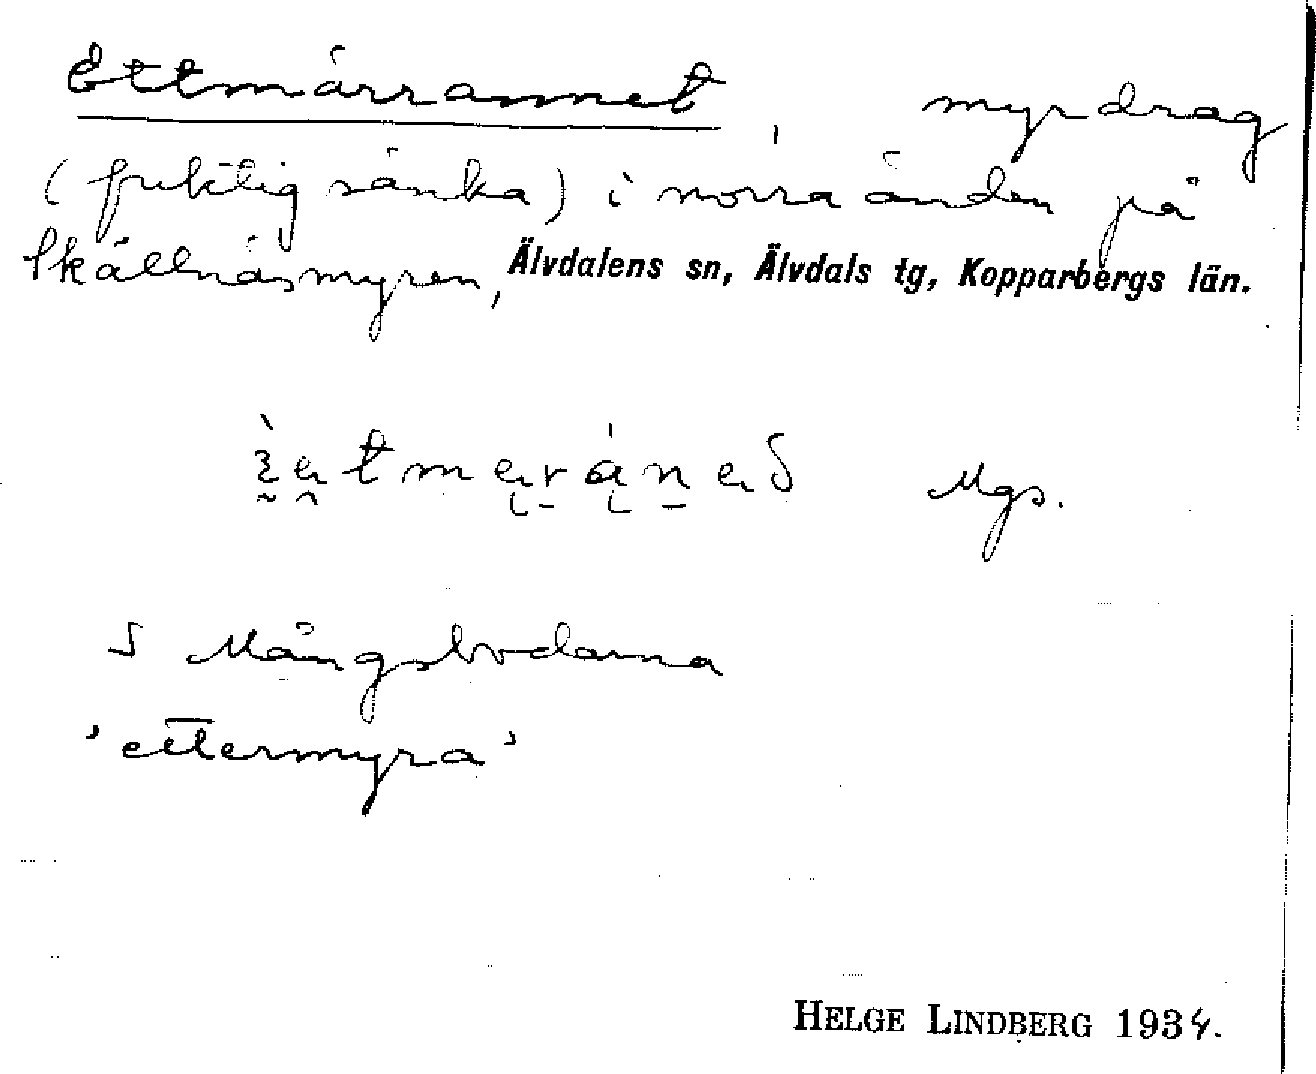 Ettmärrannet, myrdrag
(fuktig sänka) i norra änden på
Skällnäsmyren, Älvdalens sn, Älvdals tg, Kopparbergs län.
Mgs.
S Mångsbodarna
'ettermyra'
HELGE LINDBERG 1934.